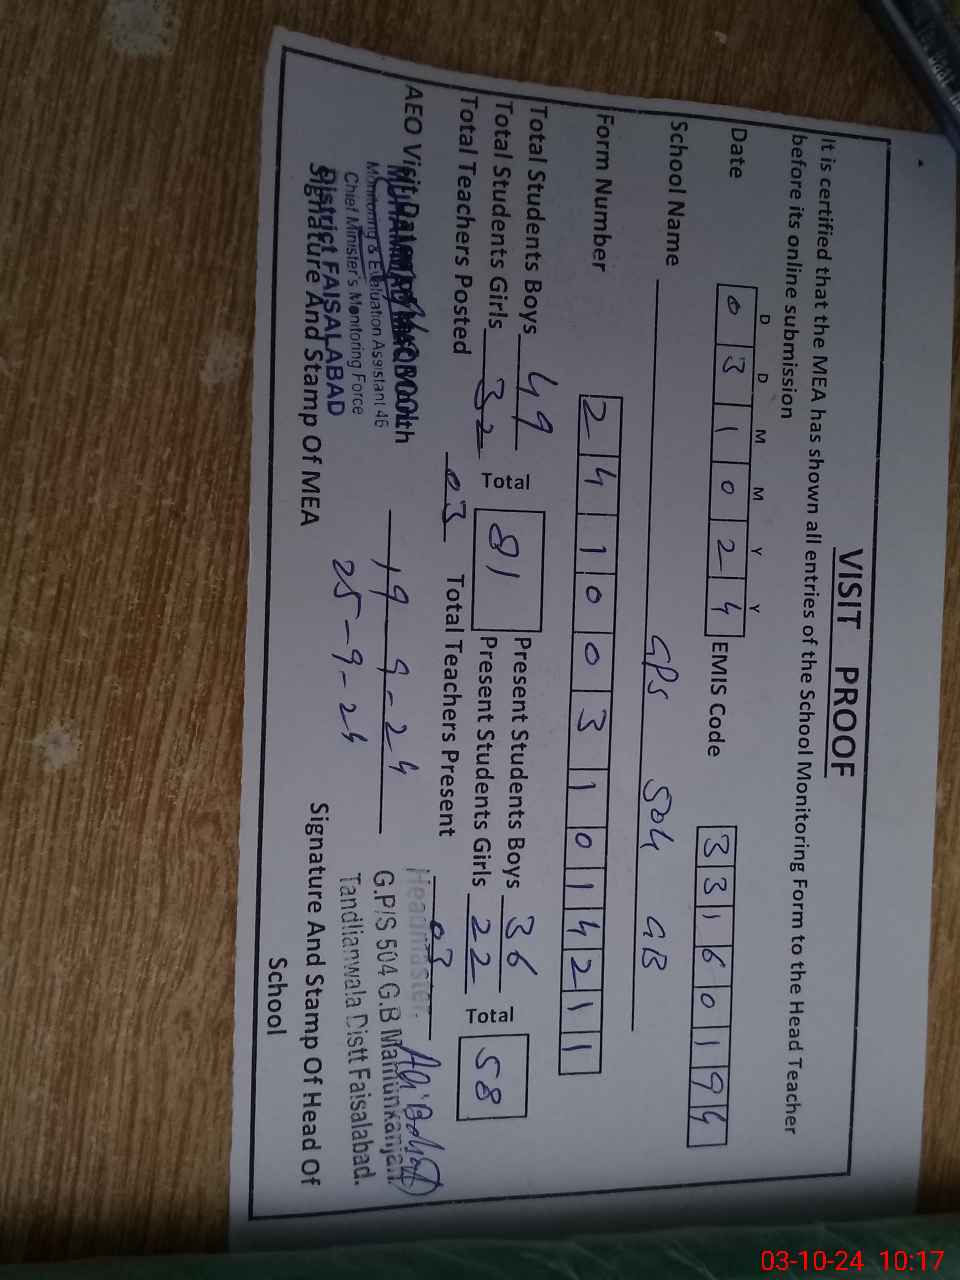 VISIT PROOF
It is certified that the MEA has shown all entries of the School Monitoring Form to the Head Teacher
before its online submission
D D M M Y Y
Date 0 3 1 0 2 4 EMIS Code 3 3 1 6 0 1 9 4
School Name GPS 504 GB
Form Number 2 4 1 0 0 3 1 0 1 4 2 1 1
Total Students Boys 49 Total 81 Present Students Boys 36 Total 58
Total Students Girls 32 Present Students Girls 22
Total Teachers Posted 03 Total Teachers Present 03
AEO Visit 19 9-24
25-9-24
MUHAMMAD MAQBOOL
Monitoring & Evaluation Assistant 46
Chief Minister's Monitoring Force
District FAISALABAD
Headmaster.
G.P/S 504 G.B Mamunkanjan
Tandlianwala Distt Faisalabad.
Signature And Stamp Of MEA
Signature And Stamp Of Head Of
School
03-10-24 10:17